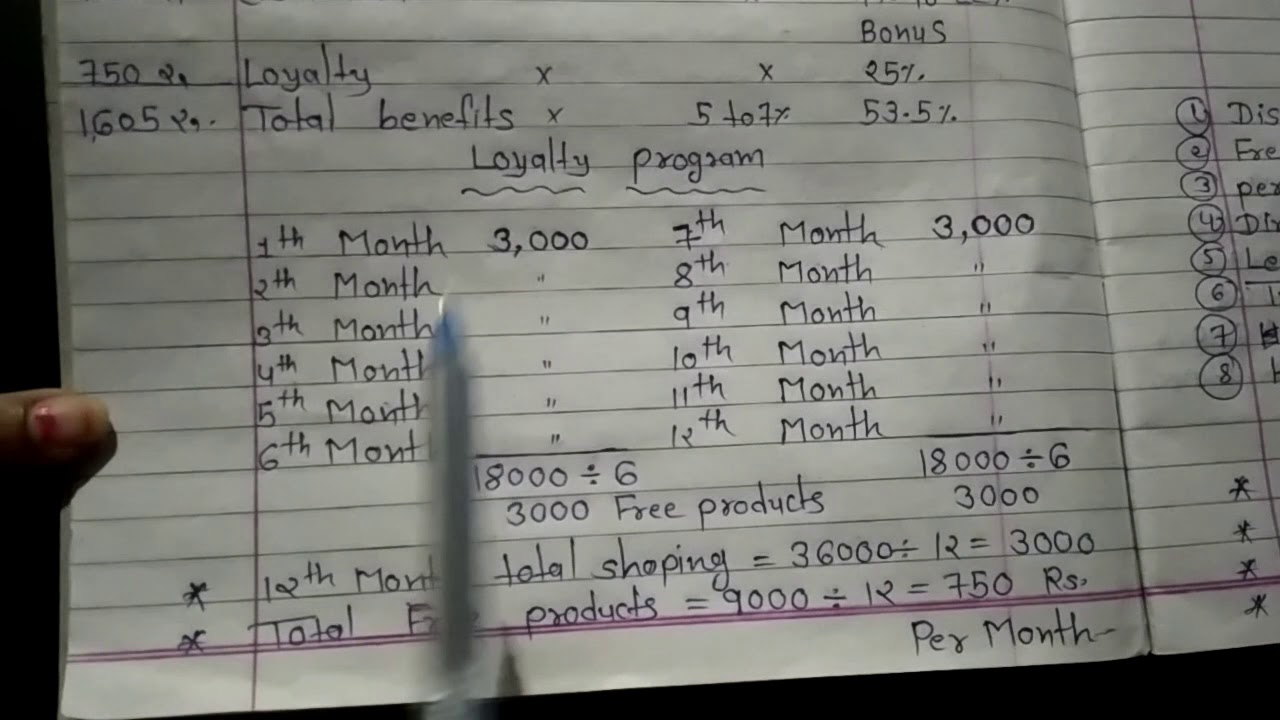 Bonus
750 रु. Loyalty x x 25%.
1,605 रु. Total benefits x 5 to 7% 53.5%.
Loyalty program
1th Month 3,000 7th Month 3,000
2th Month " 8th Month "
3th Month " 9th Month "
4th Month " 10th Month "
5th Month " 11th Month "
6th Mont " 12th Month "
18000 ÷ 6 18000 ÷ 6
3000 Free products 3000
* 12th Mont total shoping = 36000 ÷ 12 = 3000
* Total F products = 9000 ÷ 12 = 750 Rs.
Per Month
① Dis
② Fre
③ per
④ Dis
⑤ Le
⑥
⑦
⑧
*
*
*
*